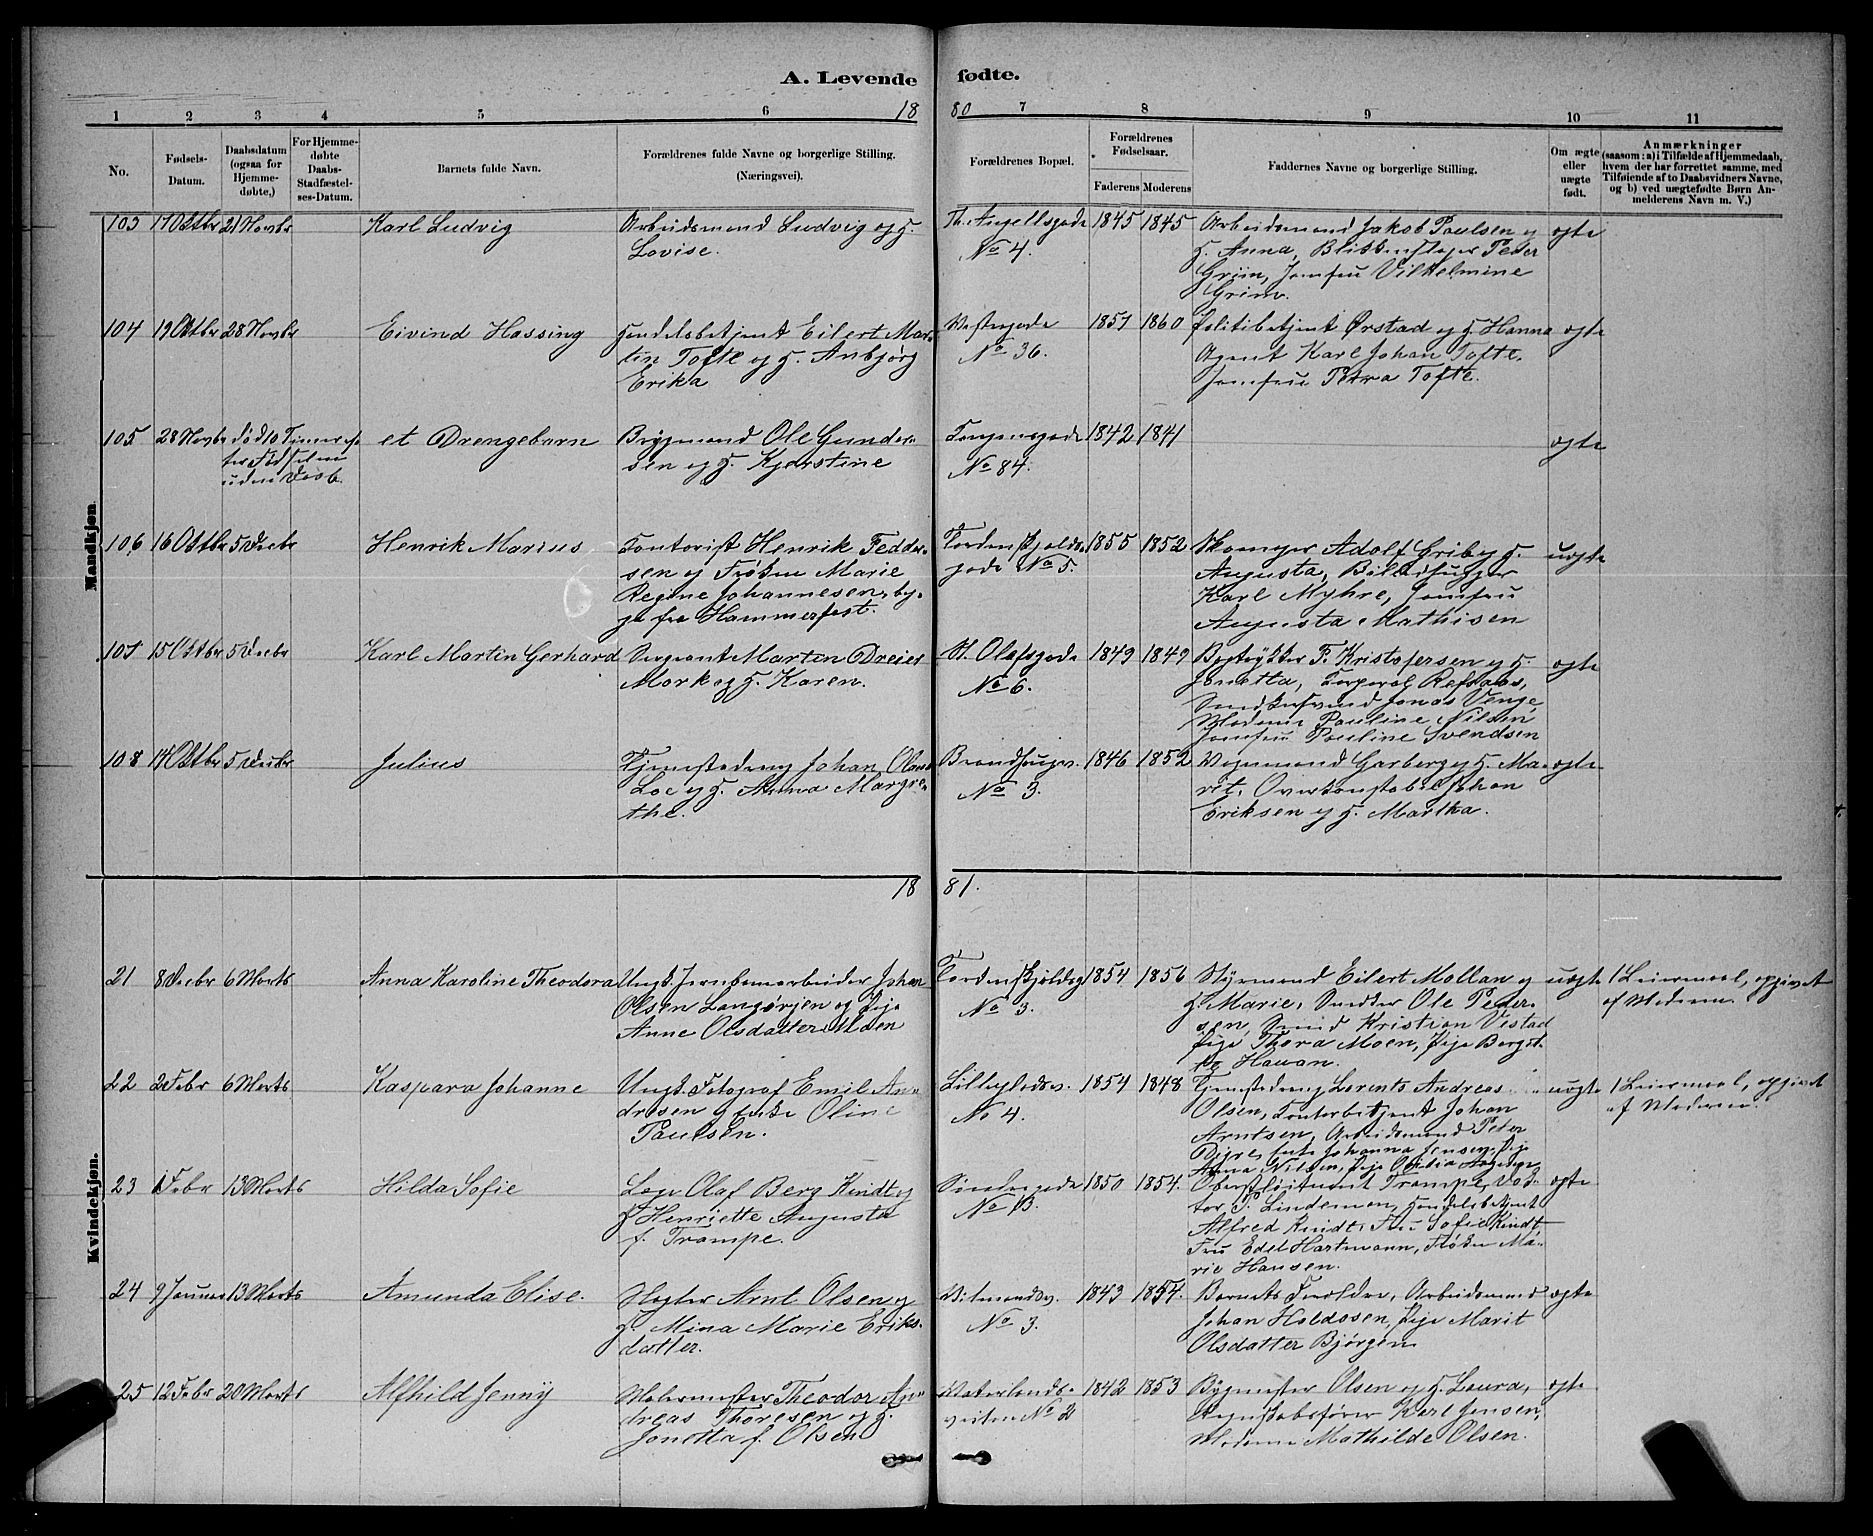 A. Levende fødte.
18 80
1 2 3 4 5 6 7 8 9 10 11
No.
Fødsels-
Datum.
Daabsdatum
(ogsaa for
Hjemme-
døbte,)
For Hjemme-
døbte
Daabs-
Stadfæstel-
ses-Datum.
Barnets fulde Navn.
Forældrenes fulde Navne og borgerlige Stilling.
(Næringsvei).
Forældrenes Bopæl.
Forældrenes
Fødselsaar.
Faderens Moderens
Faddernes Navne og borgerlige Stilling.
Om ægte
eller
uægte
født.
Anmærkninger
(saasom: a) i Tilfælde af Hjemmedaab,
hvem der har forrettet samme, med
Tilføiende af to Daabsvidners Navne,
og b) ved uægtefødte Børn An-
melderens Navn m. V.)
Mandkjøn.
103 17 Oktbr 21 Novbr Karl Ludvig
Arbeidsmand Ludvig og H.
Lovise.
Th. Angellsgade
No 4.
1845 1845
Arbeidsmand Jakob Paulsen og
H. Anna, Blikkenslager Peter
Grün, Jomfru Vilhelmine
Grim.
ægte
104 19 Oktbr 28 Novbr Eivind Hassing
Handelsbetjent Eilert Mar-
tin Tofte og H. Anbjørg
Erika
Vestergade
No 36.
1857 1860
Politibetjent Ørstad og H. Hanna
Agent Karl Johan Tofte.
Jomfru Petra Tofte.
ægte
105 28 Novbr død 10 Timer ef-
ter Fødselen
uden Daab.
et Drengebarn
Brygmand Ole Gunder-
sen og H. Kjerstine
Tongensgade
No 84.
1842 1841
ægte
106 16 Oktbr 5 Decbr Henrik Marius
Kontorist Henrik Fedder-
sen og Frøken Marie
Regine Johannesen, beg-
ge fra Hammerfest.
Tordenskjolds-
gade No 5.
1855 1852
Skomager Adolf Grib og H.
Augusta, Billedhugger
Karl Myhre, Jomfru
Augusta Mathisen
uægte
107 15 Oktbr 5 Decbr Karl Martin Gerhard
Sergeant Martin Dreier
Mork og H. Karen.
St. Olafsgade
No 6.
1849 1849
Bogtrykker F. Kristofersen og H.
Jonetta, Korporal Refsaas,
Snedkersvend Jonas Venge,
Madame Pauline Nilsen
Jomfru Pauline Svendsen
ægte
108 14 Oktbr 5 Decbr Julius
Tjenestedreng Johan Olsen
Loe og H. Anna Margre-
the.
Brandhaugv.
No 3.
1846 1852
Vognmand Garberg og H. Ma-
rit, Overkonstabel Johan
Eriksen og H. Martha.
ægte
18 81.
Kvindekjøn.
21 8 Decbr 6 Marts Anna Karoline Theodora
Ungk. Jernbanearbeider Johan
Olsen Langørgen og Pige
Anne Olsdatter Moen
Tordenskjoldsg
No 3.
1854 1856
Styrmand Eilert Mollan og
H. Marie, Snedker Ole Peder-
sen, Smed Kristian Vestad
Pige Thora Moen, Pige Bergit-
te Hauan.
uægte
1 Leiermaal, opgivet
af Moderen.
22 2 Febr 6 Marts Kaspara Johanne
Ungk. Fotograf Emil An-
dresen og Enke Oline
Paulsen.
Lillegårdsv.
No 4.
1854 1848
Tjenestedreng Lorents Andreas
Olsen, Kontorbetjent Johan
Arntsen, Arbeidsmand Peter
Enke Johanna Jensen, Pige
Anna Nilsen, Pige
uægte
1 Leiermaal, opgivet
af Moderen.
23 1 Febr 13 Marts Hilda Sofie
Læge Olaf Berg Kindt og
H. Henriette Augusta
f. Trampe.
Søndregade
No 13.
1850 1854.
Oberstløitnant Trampe, Dok-
tor P. Lindeman, Handelsbetjent
Alfred Kindt, Fru Sofie Kindt
Fru Edel Hartmann, Frøken Ma-
rie Hansen.
ægte
24 9 Januar 13 Marts Amunda Elise.
Slagter Arnt Olsen og
H. Mina Marie Eriks-
datter.
No 3.
1843 1854.
Barnets Forældre, Arbeidsmand
Johan Haldosen, Pige Marit
Olsdatter Bjørgen
ægte
25 12 Febr 20 Marts Alfhild Jenny
Malermester Theodor An-
dreas Thoresen og H.
Jonetta f. Olsen
Vaterlands-
veiten No 2
1842 1853
Bygmester Olsen og H. Laura,
Regnskabsfører Karl Jensen,
Madame Mathilde Olsen.
ægte